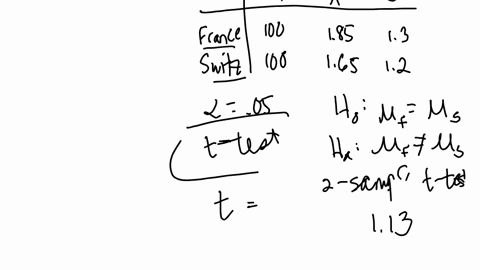 France 100 1.85 1.3
Switz 100 1.65 1.2
α = .05
t-test
t =
H₀: μf = μs
Hₐ: μf ≠ μs
2-sample t-test
1.13